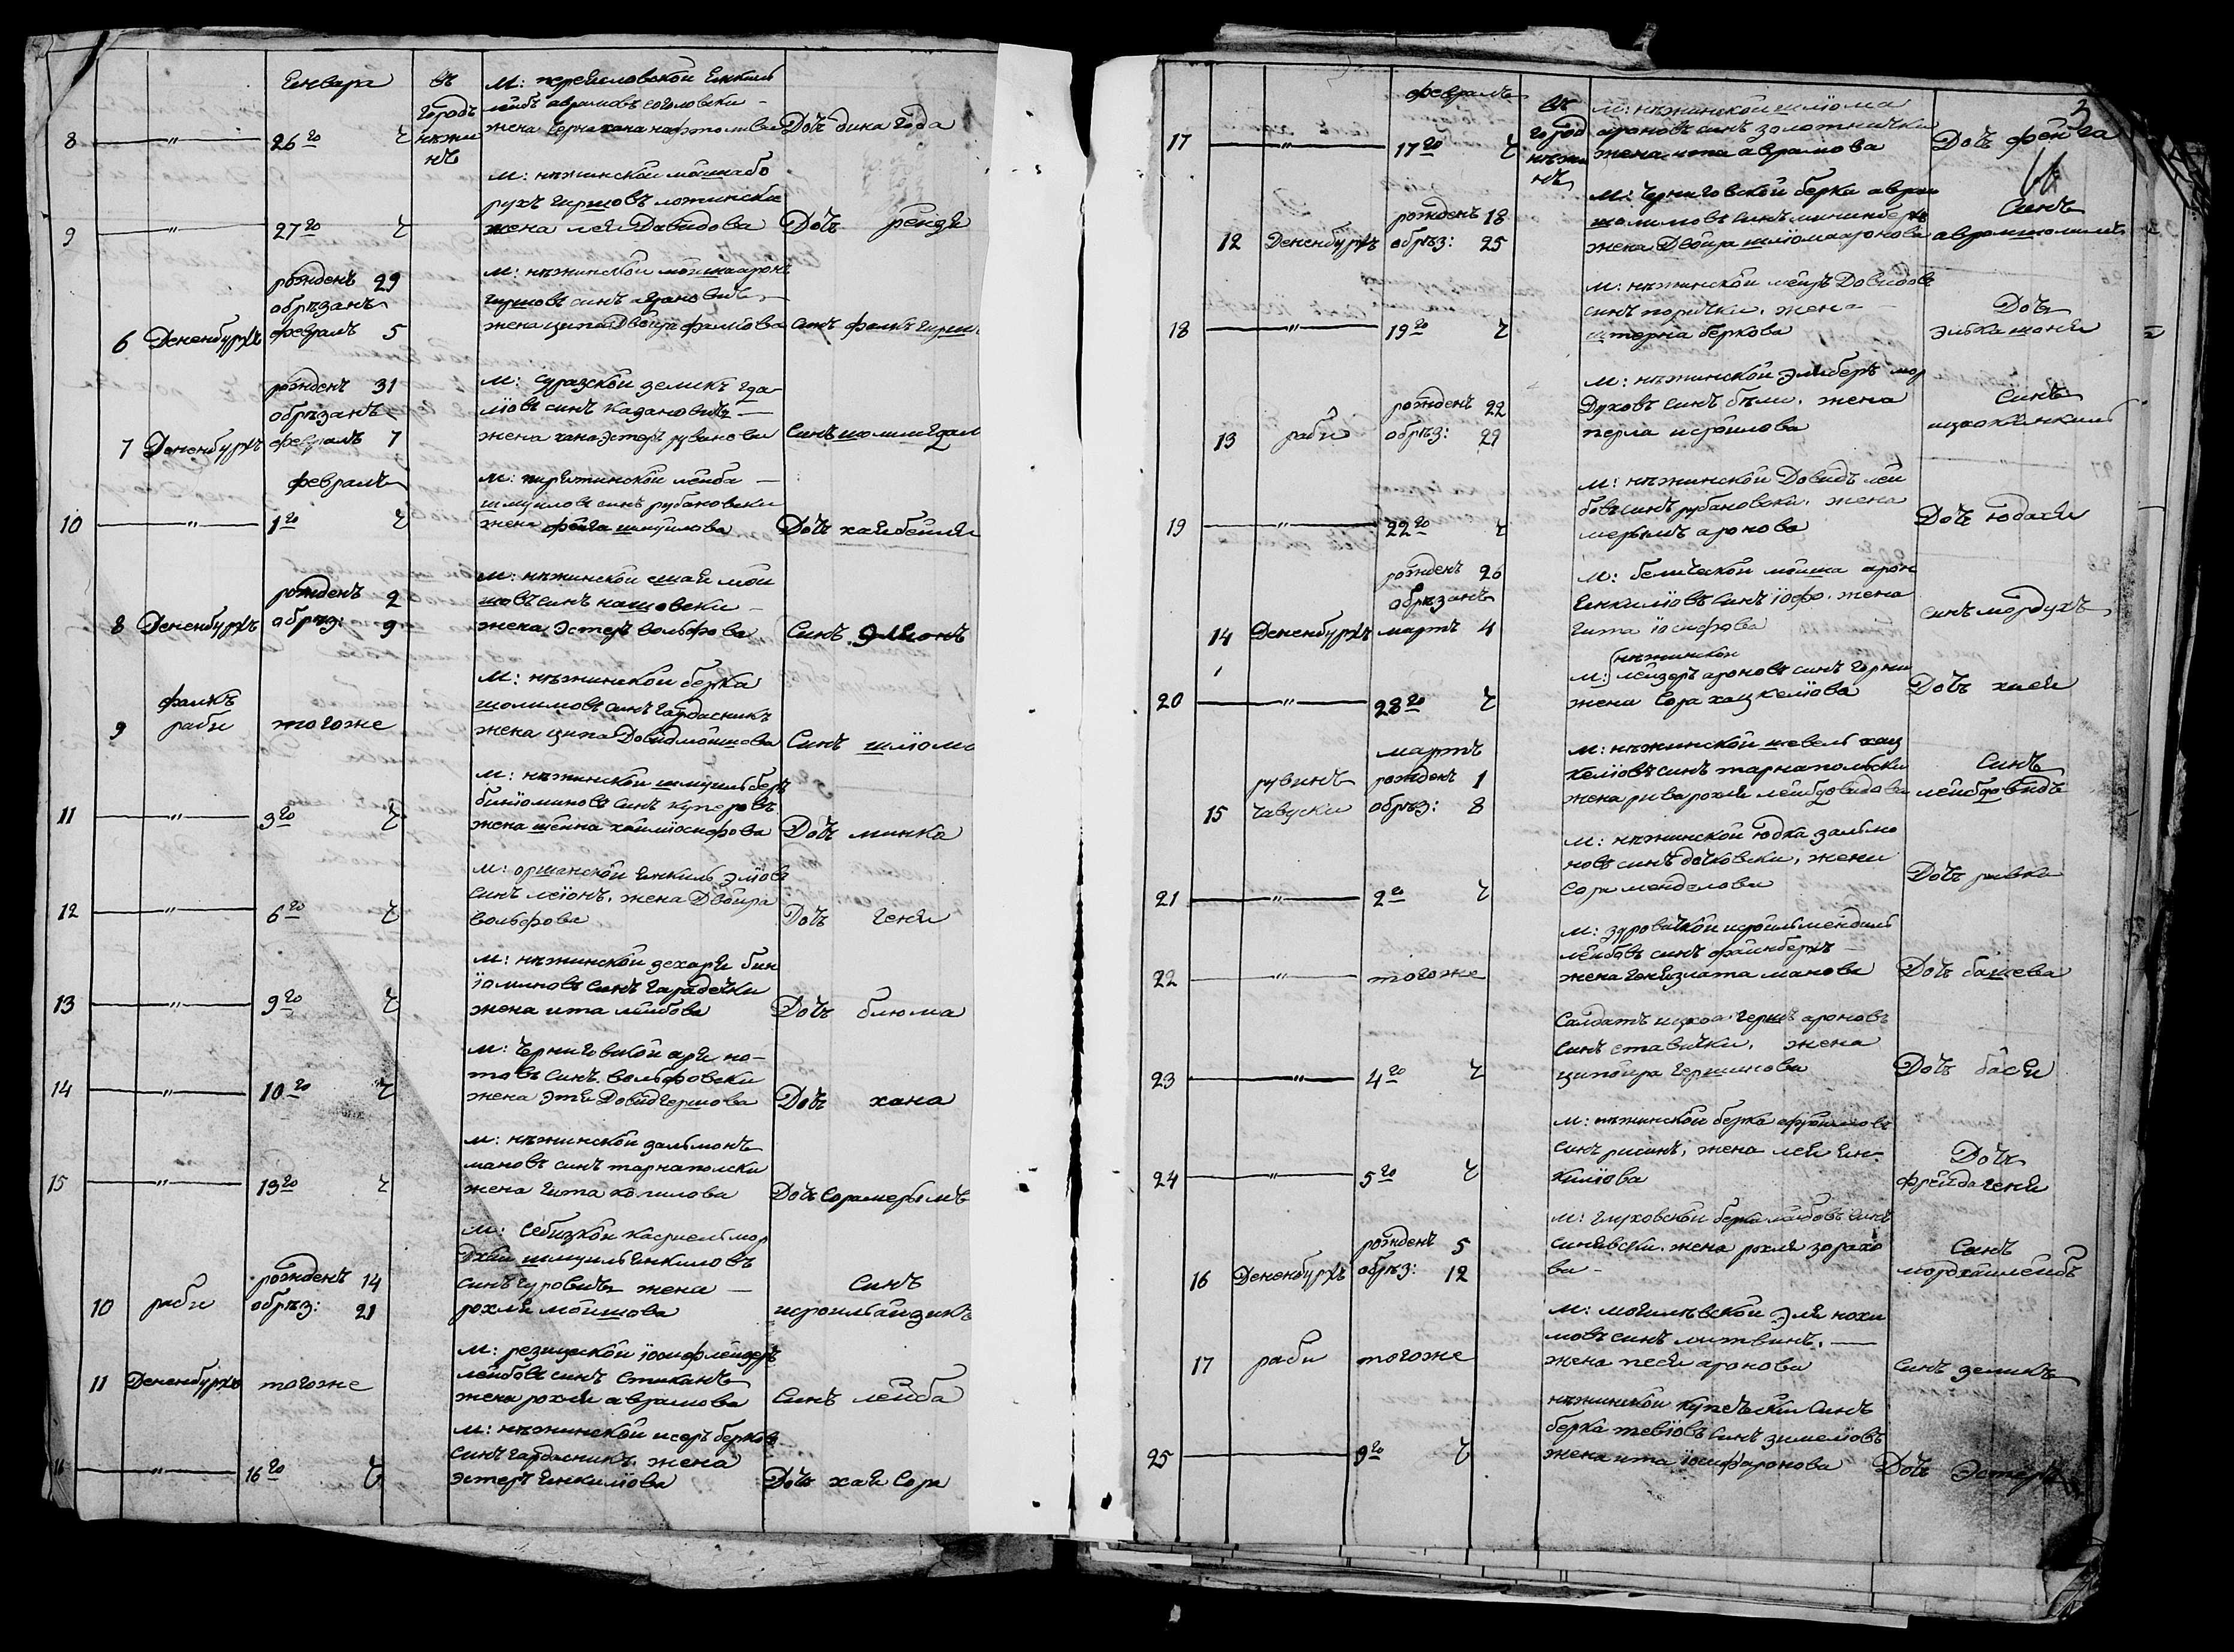 Енвара
въ
городъ
нѣжи
нѣ
8 — " — 26го
М: переясловской Енкиль
лейбъ аврамовъ соголовски —
жена Черна хана нафтолиева
Дочь дина года
9 — " — 27го
М: нѣжинской мойшабо
рухъ гиршовъ
жена лея Довидова
Дочь рейзя
6 Дененбургъ
рожденъ 29
обрѣзанъ
февраль 5
М: нѣжинской мойшааронъ
гиршовъ синъ
жена ципа Двойра фалкова
синъ фалкъ гирш
7 Дененбургъ
рожденъ 31
обрѣзанъ
февраль 7
М: суражской зеликъ гда
лиовъ синъ казановичъ —
жена ханаэстеръ рувинова
Синъ
февраль
10 — " — 1го
М: пирятинской лейба —
шмуиловъ синъ рубановски
жена фейга шмуилова
Дочь хаябейля
8 Дененбургъ
рожденъ 2
обрѣз: 9
М: нѣжинской шая мой
шовъ синъ нашовски —
жена эстеръ вольфова
Синъ
9 фалкъ
раби
тогоже
М: нѣжинской берка
шолимовъ синъ гардасникъ
жена ципа Довидмойшова
Синъ шлiомо
11 — " — 3го
М: нѣжинской шмуильберъ
бинiоминовъ синъ куперовъ
жена шейна хаймiосифова
Дочь минка
12 — " — 6го
М: оршанской Енкиль элiовъ
синъ леiонъ. жена Двойра
вольфова
Дочь геня
13 — " — 9го
М: нѣжинской зехаря бин
iоминовъ синъ гарадецки
жена ита лейбова
Дочь блюма
14 — " — 10го
М: Черниговской аря но —
товъ синъ вольфовски
жена этя Довидгершова
Дочь хана
15 — " — 13го
М: нѣжинской зальмонъ
мановъ синъ тарнаполски
жена гита копилова
Дочь Сорамерьямъ
10 раби
рожденъ 14
обрѣз: 21
М: Себижкой касриель мор
дхай шмуиль Енкиловъ
синъ гуровичъ жена —
рохля мойшова
Синъ
исроильайзикъ
11 Дененбургъ
тогоже
М: резицкой iосифлейзеръ
лейбовъ синъ стиканъ
жена рохля аврамова
Синъ лейба
16 — " — 16го
М: нѣжинской исеръ берковъ
синъ гардасникъ. жена
эстеръ Енкилiова
Дочь хая Сора
3
февраль
въ
город
нѣжи
нѣ
17 — " — 17го
М: нѣжинской шлiома
ароновъ синъ золотнички
жена ита аврамова
Дочь фейга
12 Дененбургъ
рожденъ 18
обрѣз: 25
М: Черниговской берка аврам
шолимовъ синъ
жена Двойра шлiомааронова
Синъ
аврамшолимъ
18 — " — 19го
М: нѣжинской меиръ Довидовъ
синъ порички. жена —
штерна беркова
Дочь
элька шоня
13 раби
рожденъ 22
обрѣз: 29
М: нѣжинской эльберъ мор
духовъ синъ бѣли. жена
перла исройлова
Синъ
ицхокянкиль
19 — " — 22го
М: нѣжинской Довидъ лей
бовъ синъ рубановски. жена
мерьямъ аронова
Дочь юдася
14 Дененбургъ
рожденъ 26
обрѣзанъ
мартъ 4
М: белической мойша арон
Енкилiовъ синъ iофо. жена
гита iосифова
синъ мордухъ
20 — " — 28го
нѣжинской
М: лейзеръ ароновъ синъ горни
жена Сора хацкелiова
Дочь хися
мартъ
15 рувинъ
чавуски
рожденъ 1
обрѣз: 8
М: нѣжинской шевель хац
келiовъ синъ тарнапольски
жена ривърохля лейбдовидова
Синъ
лейбдовидъ
21 — " — 2го
М: нѣжинской юдка зальмо
новъ синъ дочковски. жена
Сора менделова
Дочь ривка
22 — " — тогоже
М: исроильмендиль
лейбовъ синъ файнбергъ —
жена генязлата манова
Дочь башева
23 — " — 4го
Салдатъ ицхоа гершъ ароновъ
синъ ставички. жена
ципойра Гершинова
Дочь бася
24 — " — 5го
М: нѣжинской берка ефройиловъ
синъ рисинъ. жена лея Ен
килiова
Дочь
фрейдагеня
16 Дененбургъ
рожденъ 5
обрѣз: 12
М: глуховской берка лейбовъ синъ
синявски. жена рохля зорахо
ва —
Синъ
мордхайлейбъ
17 раби
тогоже
М: могилѣвской эля нохи
мовъ синъ литвинъ. —
жена песя аронова
синъ зеликъ
25 — " — 9го
нѣжинской купеческiй синъ
берка тевiовъ синъ зимелiовъ
жена ита iосифаронова
Дочь Эстеръ